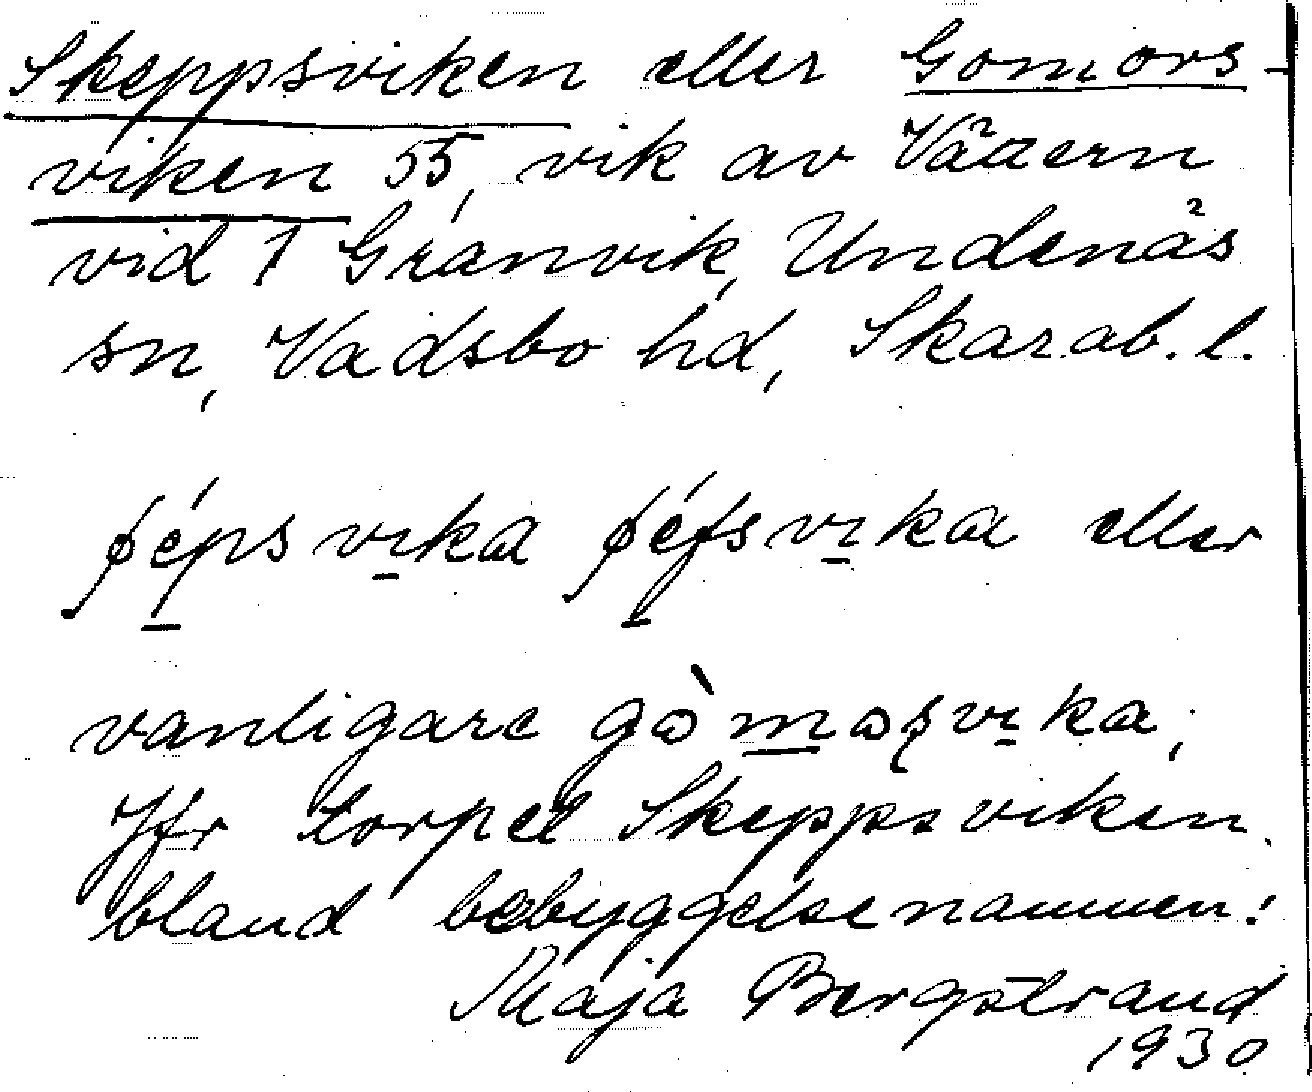 Skeppsviken eller Gomors-
viken 55, vik av Vättern
vid 1 Granvik, Undenäs
sn, Vadsbo hd, Skarab. l.
eller
vanligare
Jfr torpet Skeppsviken
bland bebyggelsenamnen!
Maja Bergstrand
1930